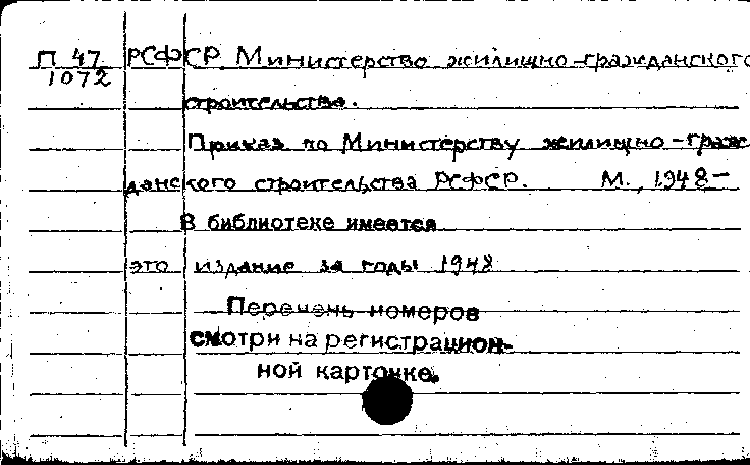 П 47 РСФСР. Министерство жилищно-гражданского
1072
строительства.
Приказ по Министерству жилищно-граж
данского строительства РСФСР. М., 1948-
В библиотеке имеется
это издание за годы 1948
Перечень номеров
смотри на регистрацион-
ной карточке.